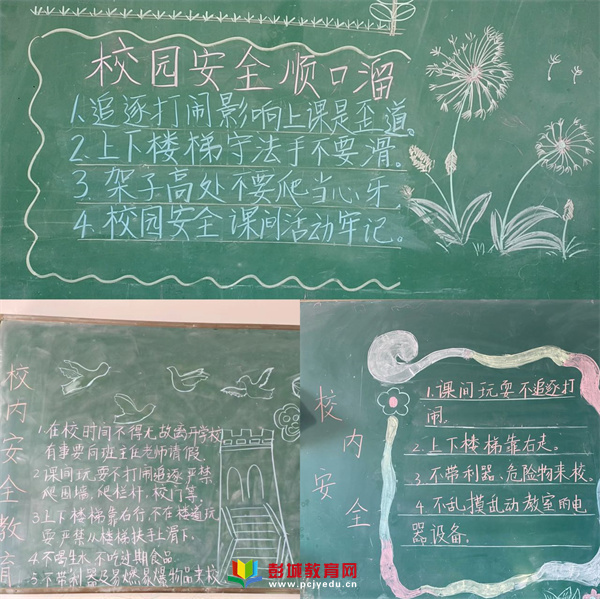 校园安全顺口溜
1.追逐打闹影响上课是歪道。
2.上下楼梯守法手不要滑。
3.架子高处不要爬当心牙
4.校园安全课间活动牢记。
校内安全教育
1.在校时间不得无故离开学校
有事要向班主任老师请假
2.课间玩耍不打闹追逐严禁
爬围墙,爬栏杆,校门等。
3.上下楼梯靠右行,不在楼道玩
耍严禁从楼梯扶手上滑下、
4.不喝生水,不吃过期食品
5.不带利器及易燃易爆物品来校
校内安全
1.课间玩耍不追逐打
闹。
2.上下楼梯靠右走。
3.不带利器、危险物来校。
4.不乱摸乱动教室的电
器设备。
彭城教育网
www.pcjyedu.cn